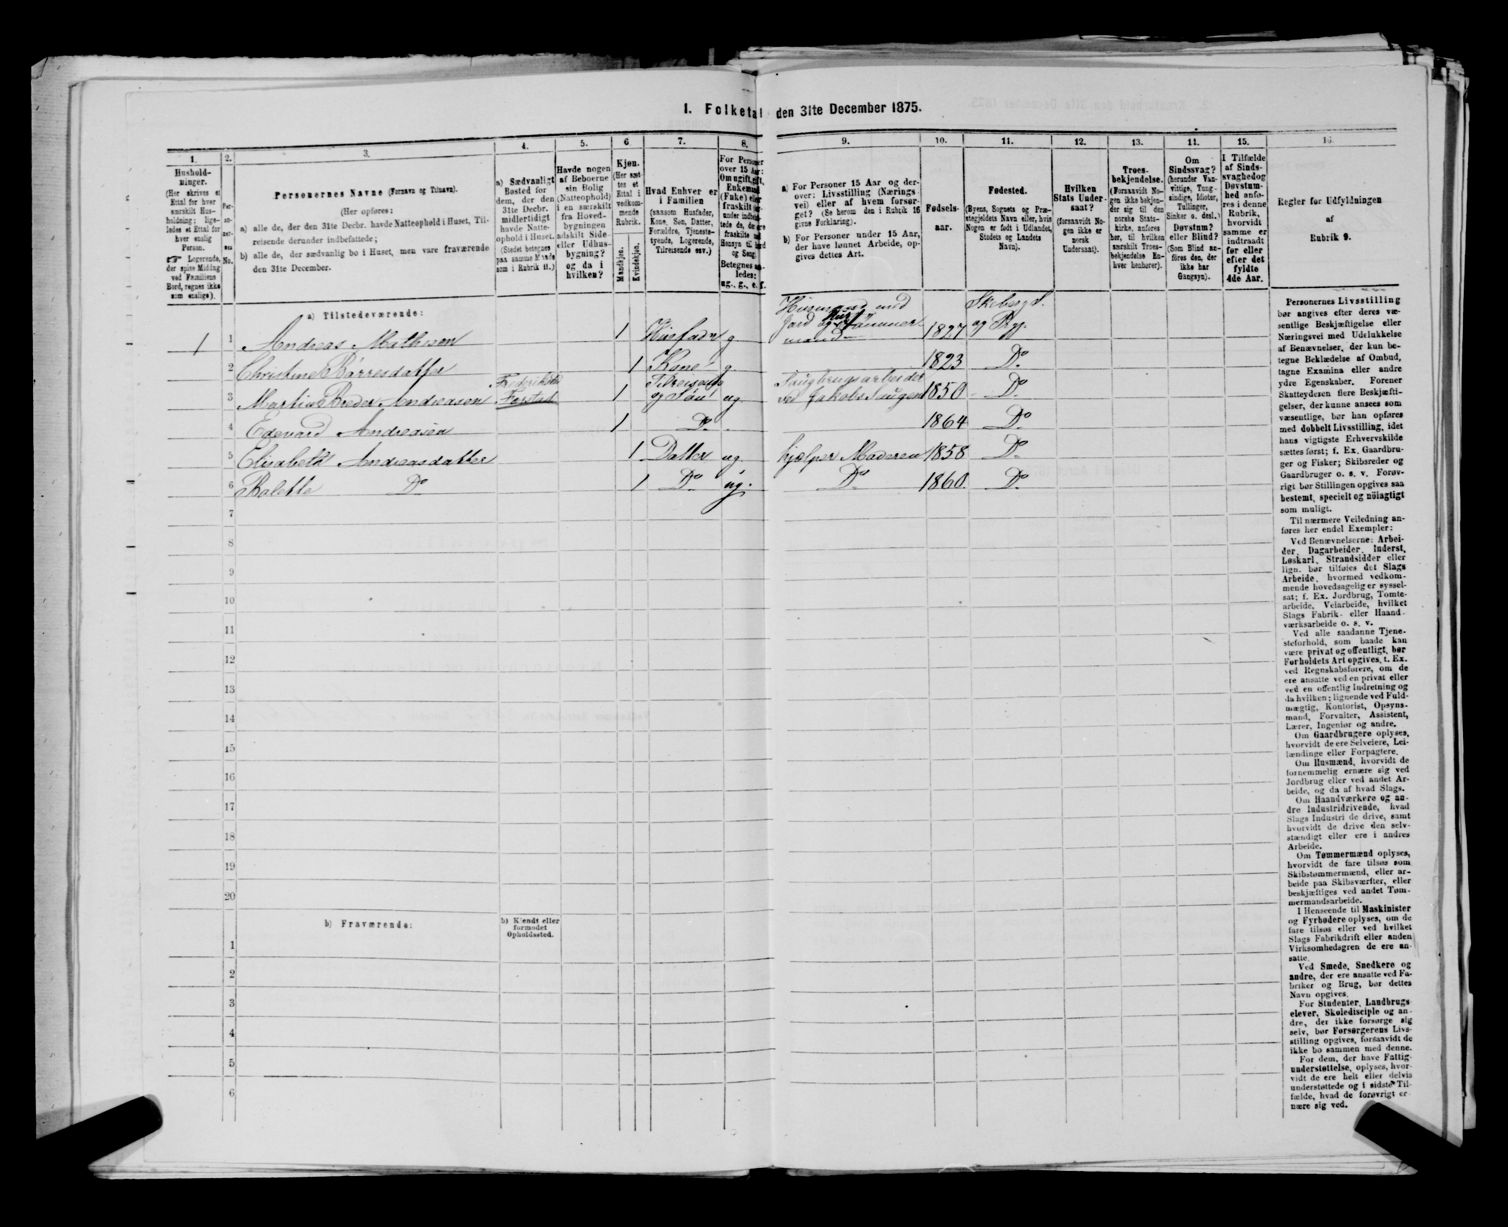 1. Folketal den 31te December 1875.
1.
2.
3.
4.
5.
6
7.
8.
9.
10.
11.
12.
13.
11.
15.
16.
Hushold-
ninger.
(Her skrives et
Ettal for hver
særskilt Hus-
holdning; lige-
ledes et Ettal for
hver enslig
Person.
☞ Logerende,
der spise Middag
ved Familiens
Bord, regnes ikke
som enslige).
Per-
so-
ner-
nes
No.
Personernes Navne (Fornavn og Tilnavn).
(Her opføres:
a) alle de, der den 31te Decbr. havde Natteophold i Huset, Til-
reisende derunder indbefattede;
b) alle de, der sædvanlig bo i Huset, men vare fraværende
den 31te December.
a) Sædvanligt
Bosted for
dem, der den
31te Decbr.
midlertidigt
havde Natte-
ophold i Huset.
(Stedet betegnes
paa samme Maade
som i Rubrik 11.)
Havde nogen
af Beboerne
sin Bolig
(Natteophold)
i en særskilt
fra Hoved-
bygningen
adskilt Side-
eller Udhus-
bygning?
og da i
hvilken?
Kjøn.
(Her sæt-
tes et
Ettal i
vedkom-
mende
Rubrik.
Mandkjøn.
Kvindekjøn.
Hvad Enhver er
i Familien
(saasom Husfader,
Kone, Søn, Datter,
Forældre, Tjeneste-
tyende, Logerende,
Tilreisende osv.)
For Personer
over 15 Aar:
Om ugift, gift,
Enkemand
(Fake) eller
fraskilt
Betegnes saa-
ledes:
ug., g., e. f.
a) For Personer 15 Aar og der-
over: Livsstilling (Nærings-
vei) eller af hvem forsør-
get? (Se herom den i Rubrik 16
givne Forklaring).
b) For Personer under 15 Aar,
der have lønnet Arbeide, op-
gives dettes Art.
Fødsels-
aar.
Fødested.
(Byens, Sognets og Præ-
stegjeldets Navn eller, hvis
Nogen er født i Udlandet,
Stedets og Landets
Navn).
Hvilken
Stats Under-
saat?
(forsaavidt No-
gen ikke er
norsk
Undersaat).
Troes-
bekjendelse.
(Forsaavidt No-
gen ikke bekjen-
der sig til den
norske Stats-
kirke, anføres
her, til hvilken
særskilt Troes-
bekjendelse En-
hver henhører).
Om
Sindssvag?
(herunder Van-
vittige, Tung-
sindige, Idioter,
Tullinger,
Sinker o. desl.,
Døvstum?
eller Blind?
(Som Blind an-
føres den, der
ikke har
Gangsyn).
I Tilfælde
af Sinds-
svaghed og
Døvstum-
hed anfø-
res i denne
Rubrik,
hvorvidt
samme er
indtraadt
før eller
efter det
fyldte
4de Aar.
Regler for Udfyldningen
af
Rubrik 9.
a) Tilstedeværende:
1 1 Andreas Mathisen 1 Husfader g Husmand med Jord og Tømmermand 1827 Skiberg S. og Prg.
2 Christine Børresdatter 1 Kone g 1823 Do
3 Martin Andreasen Fredrikstad 1 Tilreisende og Søn ug Saugbrugsarbeider 1850 Do
4 Edevard Andreasen 1 Do 1864 Do
5 Elisabeth Andreasdatter 1 Datter ug hjælper Moderen 1858 Do
6 Balette Do 1 Do ug. Do 1860 Do
7
8
9
10
11
12
13
14
15
16
17
18
19
20
b) Fraværende:
b) Kjendt eller
formodet
Opholdssted.
1
2
3
4
5
6
Personernes Livsstilling
bør angives efter deres væ-
sentlige Beskjæftigelse eller
Næringsvei med Udelukkelse
af Benævnelser, der kun be-
tegne Beklædelse af Ombud,
tagne Examina eller andre
ydre Egenskaber. Forener
Skatteydesen flere Beskjæfti-
gelser, der kunne ansees som
væsentlige, bør han opføres
med dobbelt Livsstilling, idet
hans vigtigste Erhvervskilde
sættes først; f. Ex. Gaardbru-
ger og Fisker; Skibsreder og
Gaardbruger o. s. v. Forøv-
rigt bør Stillingen opgives saa
bestemt, specielt og nöiagtigt
som muligt.
Til nærmere Veiledning an-
føres her endel Exempler:
Ved Benævnelserne: Arbei-
der, Dagarbeider, Inderst,
Løskarl, Strandsidder eller
lign. bør tilføies det Slags
Arbeide, hvormed vedkom-
mende hovedsagelig er syssel-
sat; f. Ex. Jordbrug, Tomte-
arbeide, Veiarbeide, hvilket
Slags Fabrik- eller Haand-
værksarbeide o. s. v.
Ved alle saadanne Tjene-
steforhold, som baade kan
være privat og offentligt, bør
Forholdets Art opgives, t. Ex.
ved Regnskabsførere, om de
ere ansatte ved en privat eller
ved en offentlig Indretning og
da hvilken; lignende ved Fuld-
mægtig, Kontorist, Opsyns-
mand, Forvalter, Assistent,
Lærer, Ingeniør og andre.
Om Gaardbrugere oplyses,
hvorvidt de ere Selveiere, Lei-
lændinge eller Forpagtere.
Om Husmænd, hvorvidt de
fornemmelig ernære sig ved
Jordbrug eller ved andet Ar-
beide, og da af hvad Slags.
Om Haandværkere og an-
dre Industridrivende, hvad
Slags Industri de drive, samt
hvorvidt de drive den selv-
stændigt eller ere i andres
Arbeide.
Om Tømmermænd oplyses,
hvorvidt de fare tilsøs som
Skibstømmermænd, eller ar-
beide paa Skibsværfter, eller
beskjæftiges ved andet Tøm-
mermandsarbeide.
I Henseende til Maskinister
og Fyrbødere oplyses, om de
fare tilsøs eller ved hvilket
Slags Fabrikdrift eller anden
Virksomhedsgren de ere an-
satte.
Ved Smede, Snedkere og
andre, der ere ansatte ved Fa-
briker og Brug, bør dettes
Navn opgives.
For Studenter, Landbrugs-
elever, Skoledisciple og an-
dre, der ikke forsørge sig
selv, bør Forsørgerens Livs-
stilling opgives, forsaavidt de
ikke bo sammen med denne.
For dem, der have Fattig-
understøttelse, oplyses, hvor-
vidt de ere helt eller delvis
understøttede og i sidste Til-
fælde, hvad de forøvrigt er-
nære sig ved.